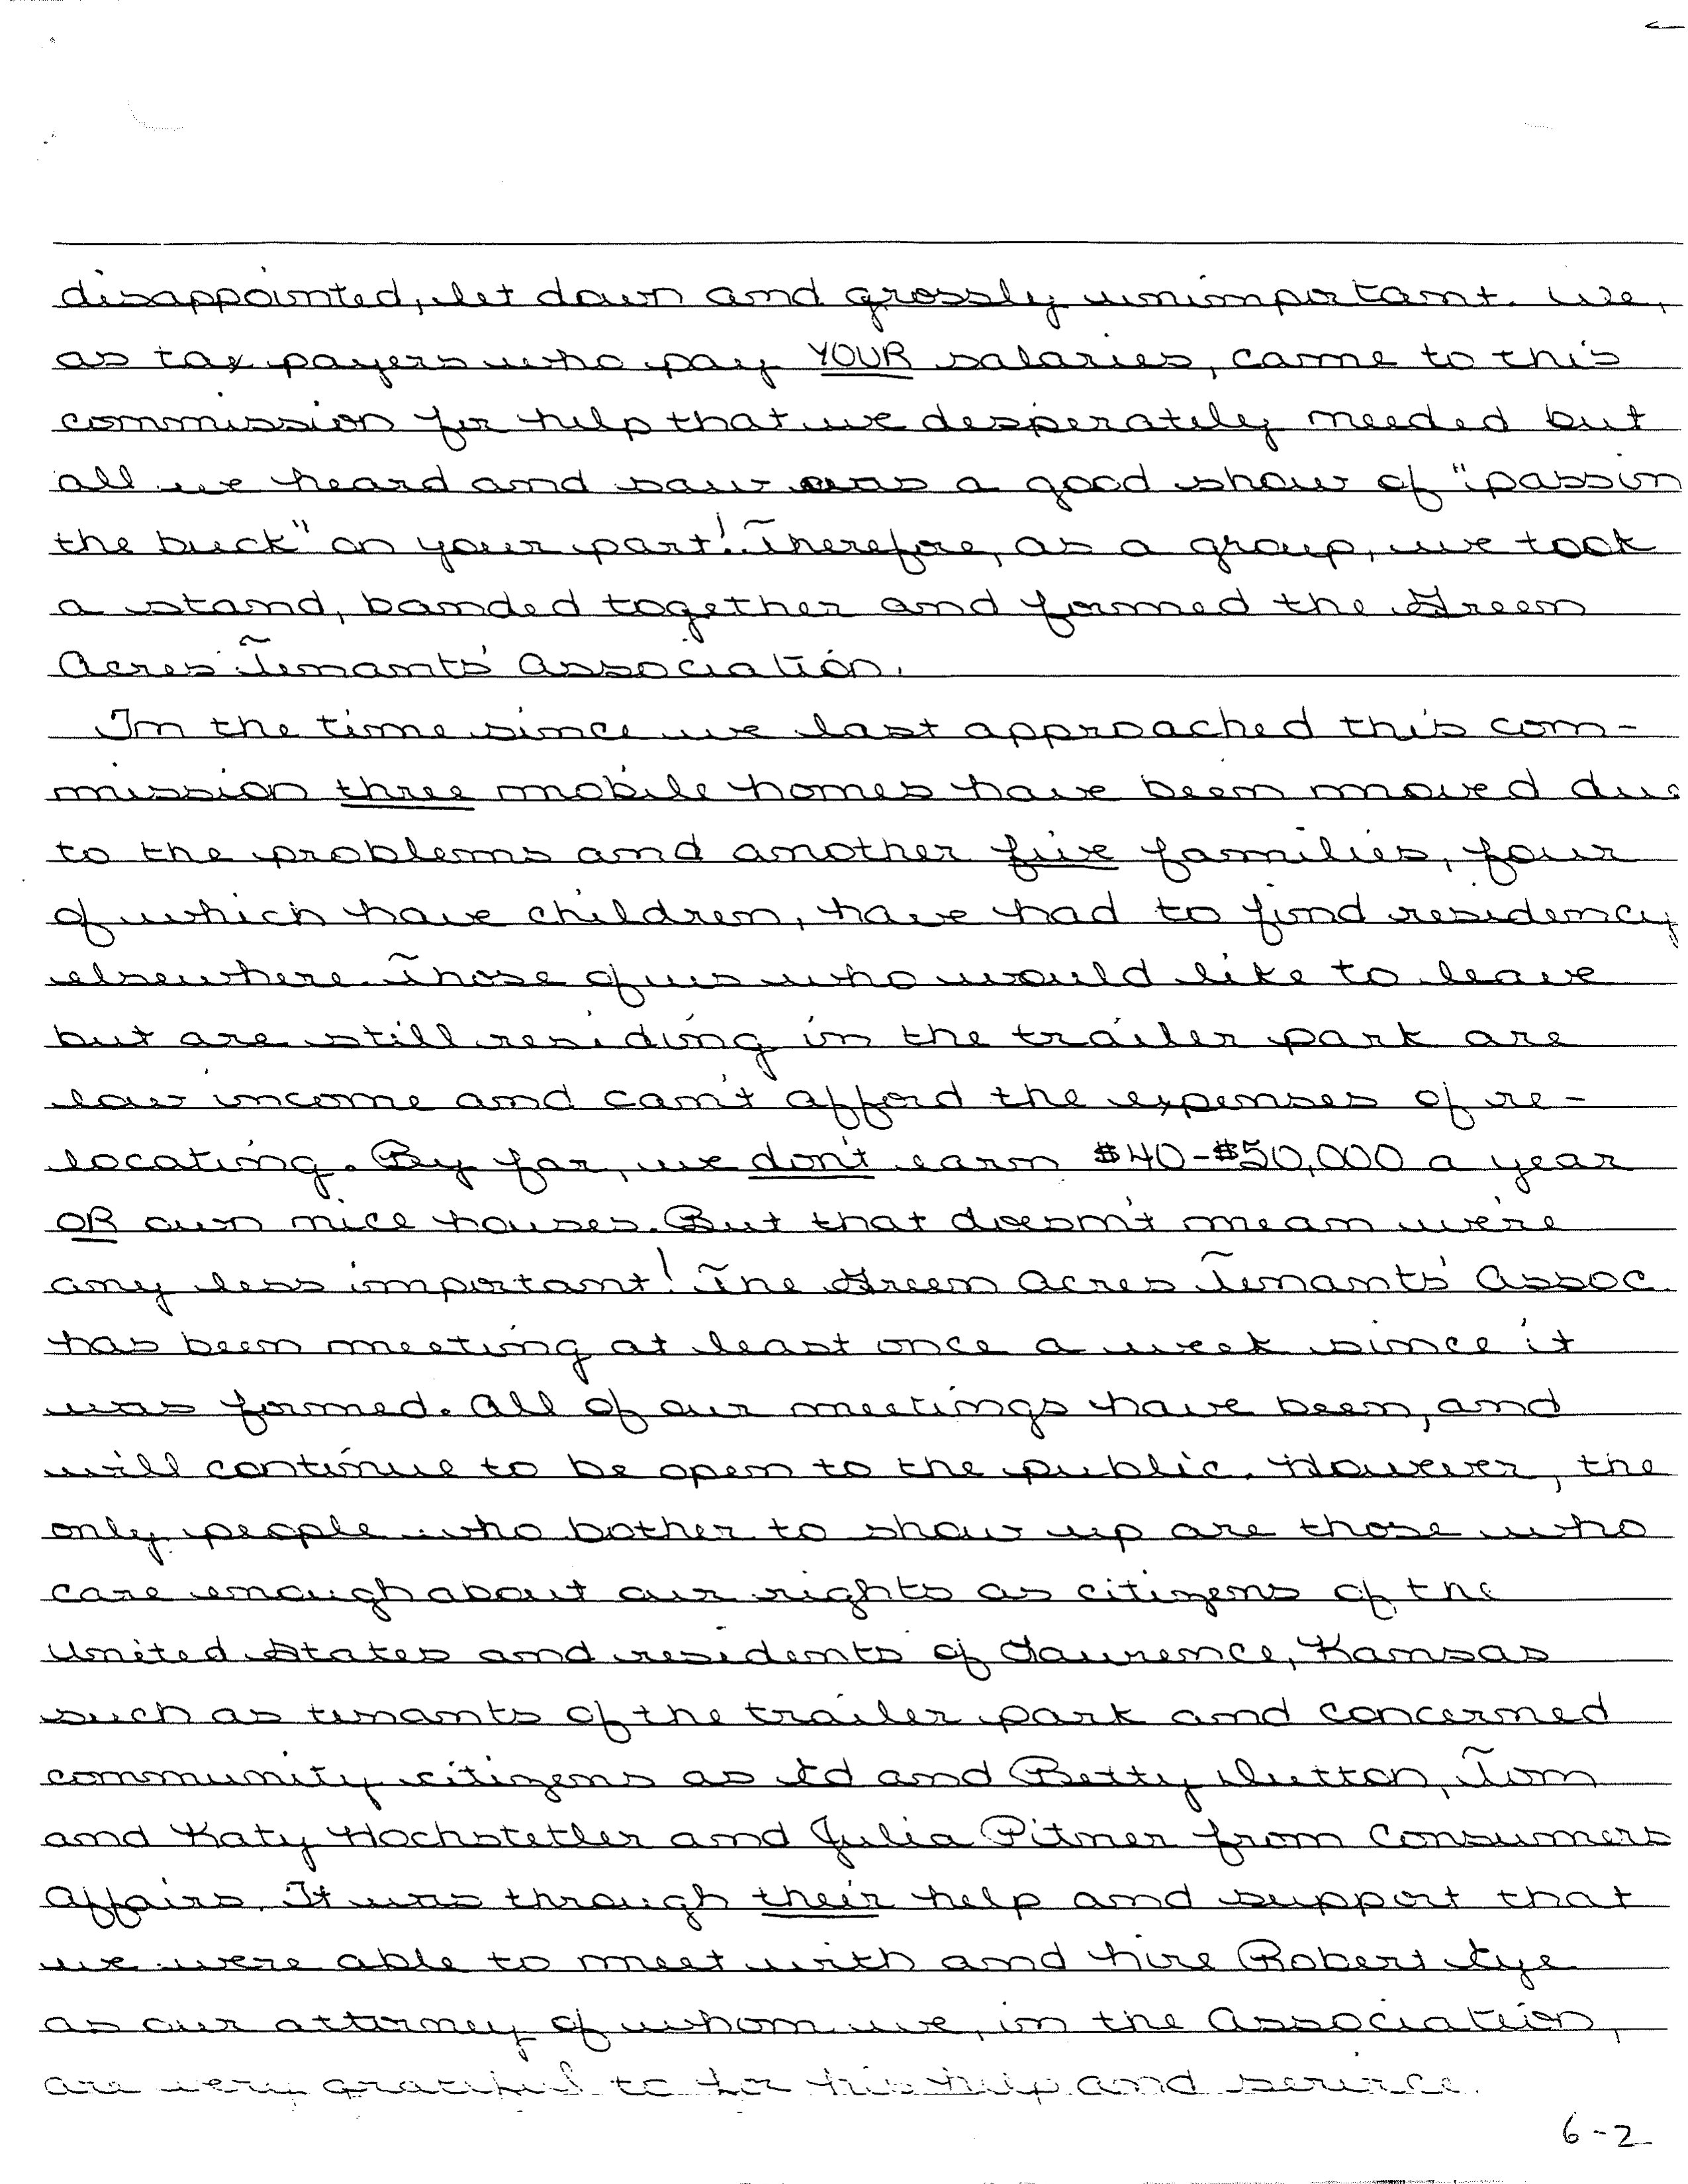 disappointed, let down and grossly unimportant. We,
as tax payers who pay YOUR salaries, came to this
commission for help that we desperately needed but
all we heard and saw was a good show of "passin
the buck" on your part! Therefore, as a group, we took
a stand, banded together and formed the Green
Acres Tenants' Association.
In the time since we last approached this com-
mission three mobile homes have been moved due
to the problems and another five families, four
of which have children, have had to find residency
elsewhere. Those of us who would like to leave
but are still residing in the trailer park are
low income and can't afford the expenses of re-
locating. By far, we don't earn $40-$50,000 a year
OR own nice houses. But that doesn't mean we're
any less important! The Green Acres Tenants' Assoc.
has been meeting at least once a week since it
was formed. All of our meetings have been, and
will continue to be open to the public. However, the
only people who bother to show up are those who
care enough about our rights as citizens of the
United States and residents of Lawrence, Kansas
such as tenants of the trailer park and concerned
community citizens as Ed and Betty Dutton, Tom
and Katy Hochstetler and Julia Pitner from Consumers
Affairs. It was through their help and support that
we were able to meet with and hire Robert Eye
as our attorney of whom we, in the Association,
are very grateful to for his help and service.
6-2